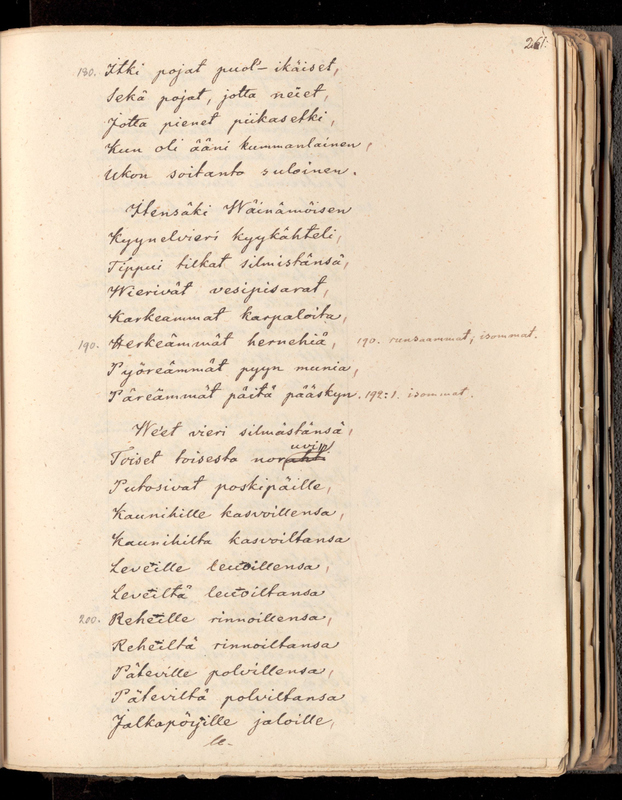 261.
180. Itki pojat puol'-ikäiset,
Sekä pojat, jotta neiet,
Jotta pienet piikasetki,
Kun oli ääni kummanlainen,
Ukon soitanto suloinen.
Itensäki Wäinämöisen
Kyynelvieri kyykähteli,
Tippui tilkat silmistänsä,
Wierivät vesipisarat,
Karkeammat karpaloita,
190. Herkeämmät hernehiä, 190. runsaammat, isommat.
Pyöreämmät pyyn munia,
Päreämmät päitä pääskyn. 192:1. isommat.
We'et vieri silmästänsä,
uvip
Toiset toisesta norahti
Putosivat poskipäille,
Kaunihille kasvoillensa,
Kaunihilta kasvoiltansa
Leveille leuoillensa,
Leveiltä leuoiltansa
200. Reheille rinnoillensa,
Reheiltä rinnoiltansa
Päteville polvillensa,
Päteviltä polviltansa
Jalkapöyille jaloille,